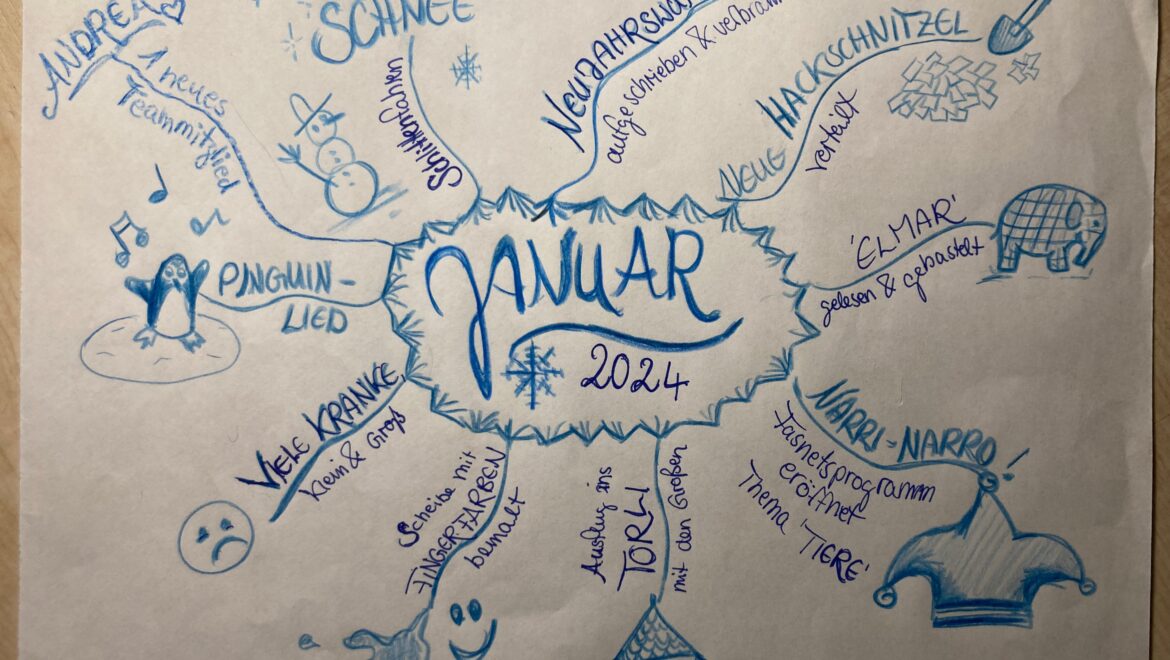 ANDREA
1 neues
Teammitglied
SCHNEE
Schlittenfahren
aufgeschrieben &
NEUE HACKSCHNITZEL
verteilt
'ELMAR'
gelesen & gebastelt
NARRI-NARRO!
Fasnetsprogramm
eröffnet
Thema 'TIERE'
Ausflug ins
TORLI
mit den Großen
Scheibe mit
FINGERFARBEN
bemalt
VIELE KRANKE
Klein & Groß
PINGUIN-
LIED
JANUAR
2024